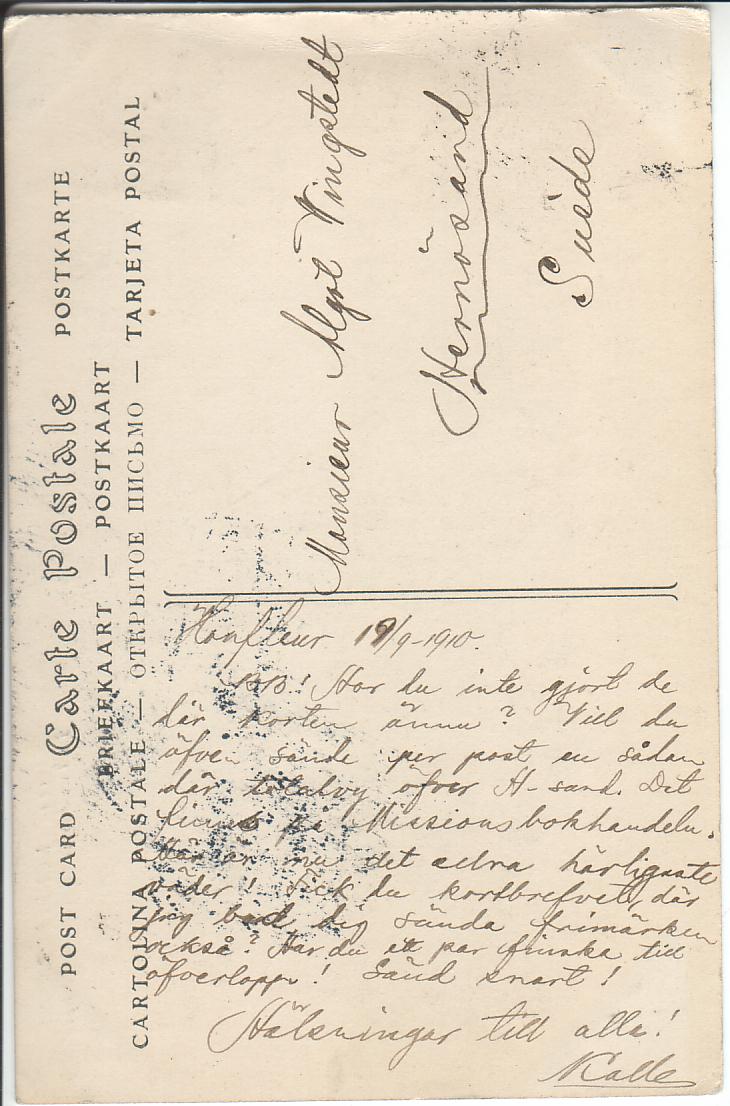 POST CARD Carte Postale POSTKARTE
BRIEFKAART — POSTKAART
CARTOLINA POSTALE — ОТКРЫТОЕ ПИСЬМО — TARJETA POSTAL
Monsieur Algot Vingstedt
Hernösand
Suède
Honfleur 19/9-1910.
BB! Har du inte gjort de
där korten ännu? Vill du
öfven sände per post en sådan
där totalvy öfver H-sand. Det
finnes på Missionsbokhandeln.
Här är nu det allra härligaste
väder! Fick du kortbrefvet, där
jag bad dig sända frimärken
också? Har du ett par finska till
öfverlopp! Sänd snart!
Hälsningar till alla!
Kalle